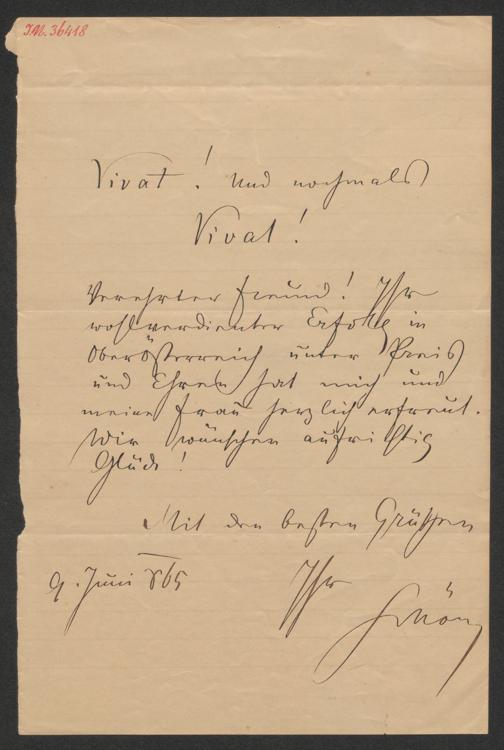 I.N. 36418
Vivat! Und nochmals
Vivat!
Verehrter Freund! Ihr
wohlverdienter Erfolg in
Oberösterreich unter Preis
und Ehren hat mich und
meine Frau herzlich erfreut.
Wir wünschen aufrichtig
Glück!
Mit den besten Grüßen
9. Juni 865
Ihr
Schön